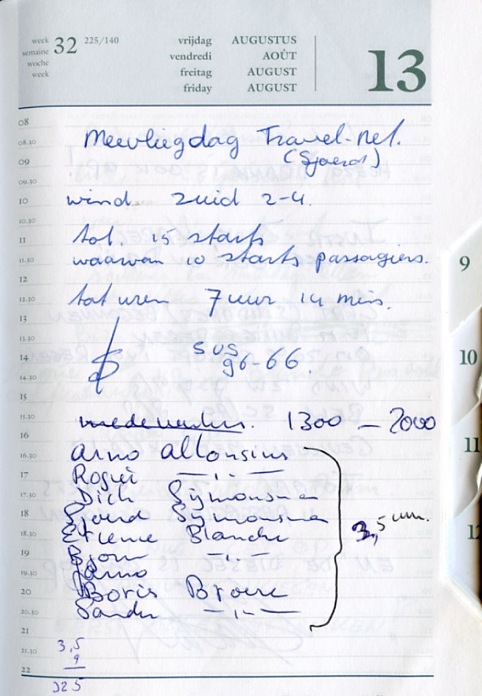 week
semaine
woche
week
32
225/140
vrijdag AUGUSTUS
vendredi AOÛT
freitag AUGUST
friday AUGUST
13
08
08.30
09
09.30
10
10.30
11
11.30
12
12.30
13
13.30
14
14.30
15
15.30
16
16.30
17
17.30
18
18.30
19
19.30
20
20.30
21
21.30
22
Meevliegdag Travel-Net.
(Sjoerd)
wind zuid 2-4.
tot. 15 starts
waarvan 10 starts passagiers.
tot uren 7 uur 14 mins.
SUS
96-66.
medewerkers. 1300 - 2000
Arno Allonsius
Rogier —"—
Dick Sijmonsma
Sjoerd Sijmonsma
Etienne Blanche
Bjorn —"—
Jarno
Boris Broere
Sander —"—
3,5 uur.
3,5
9
325
9
10
11
12